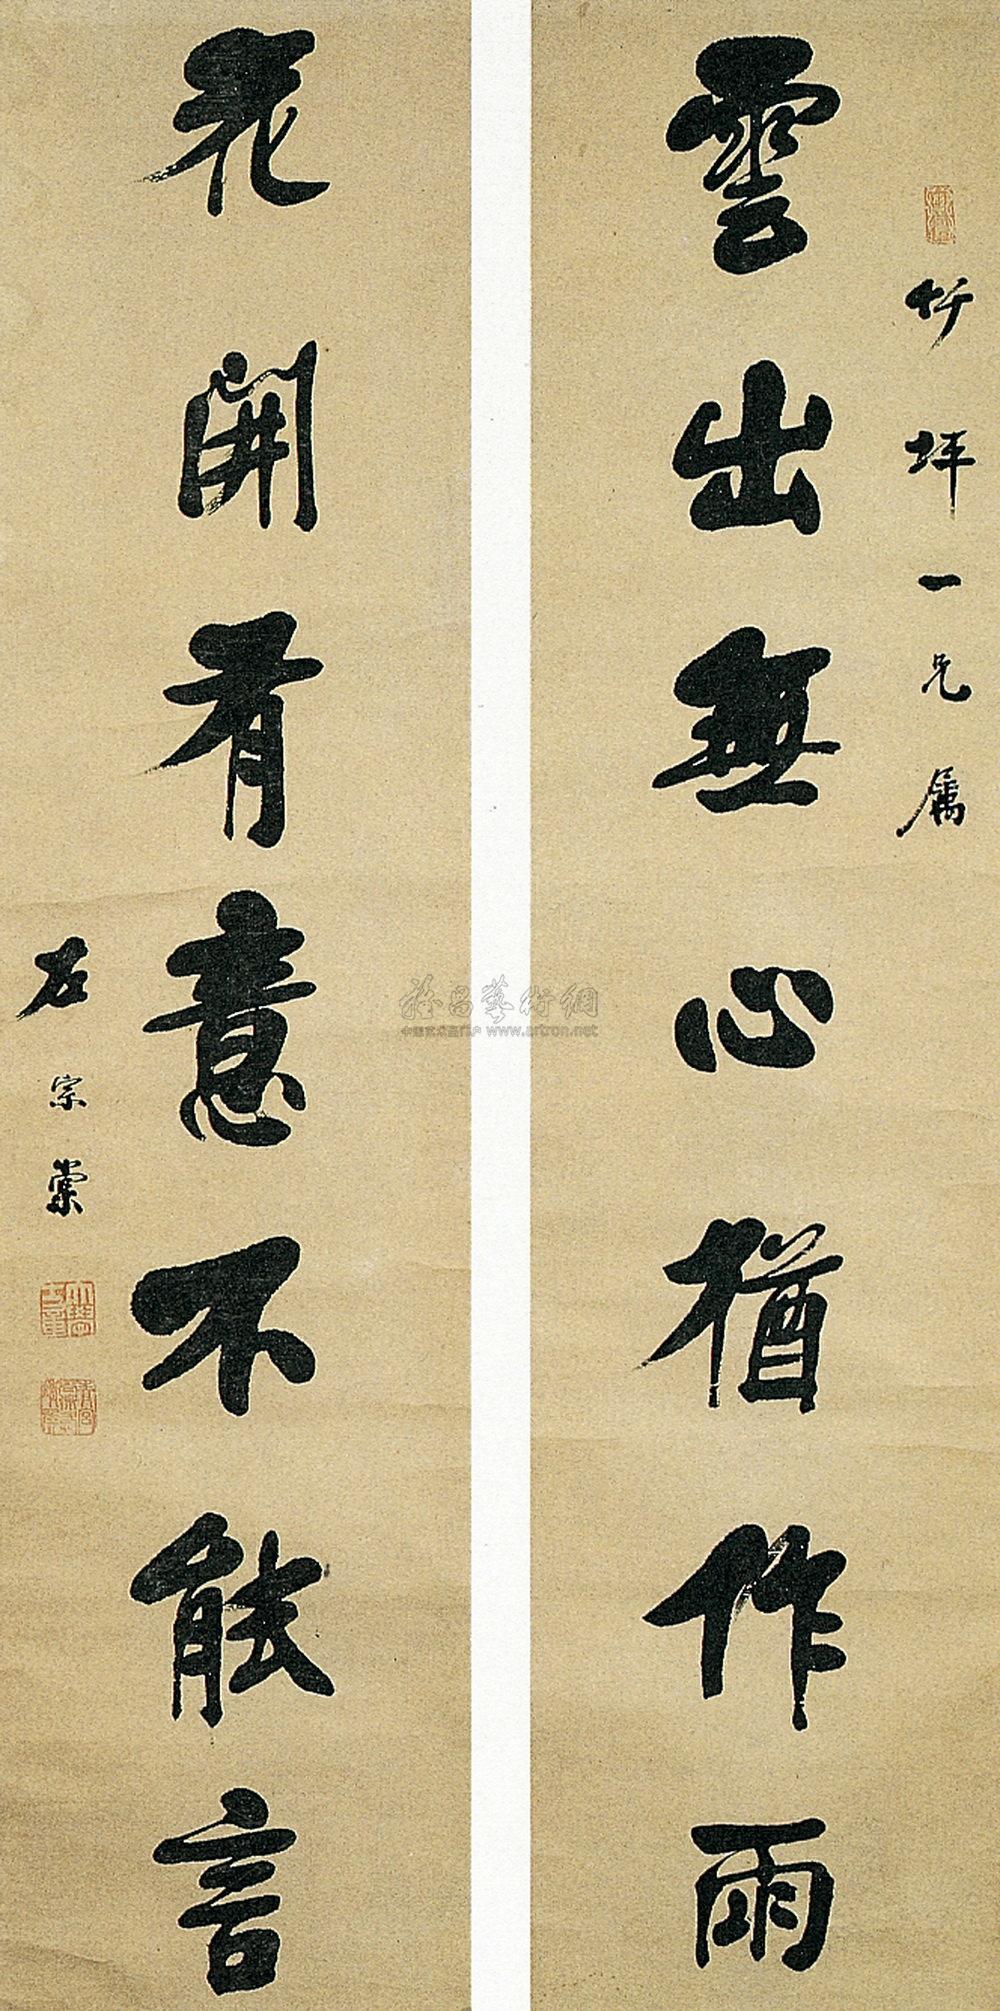 竹坪一兄属
雲出無心猶作雨
花開有意不能言
左宗棠
雅昌藝術網
中国艺术品门户 www.artron.net